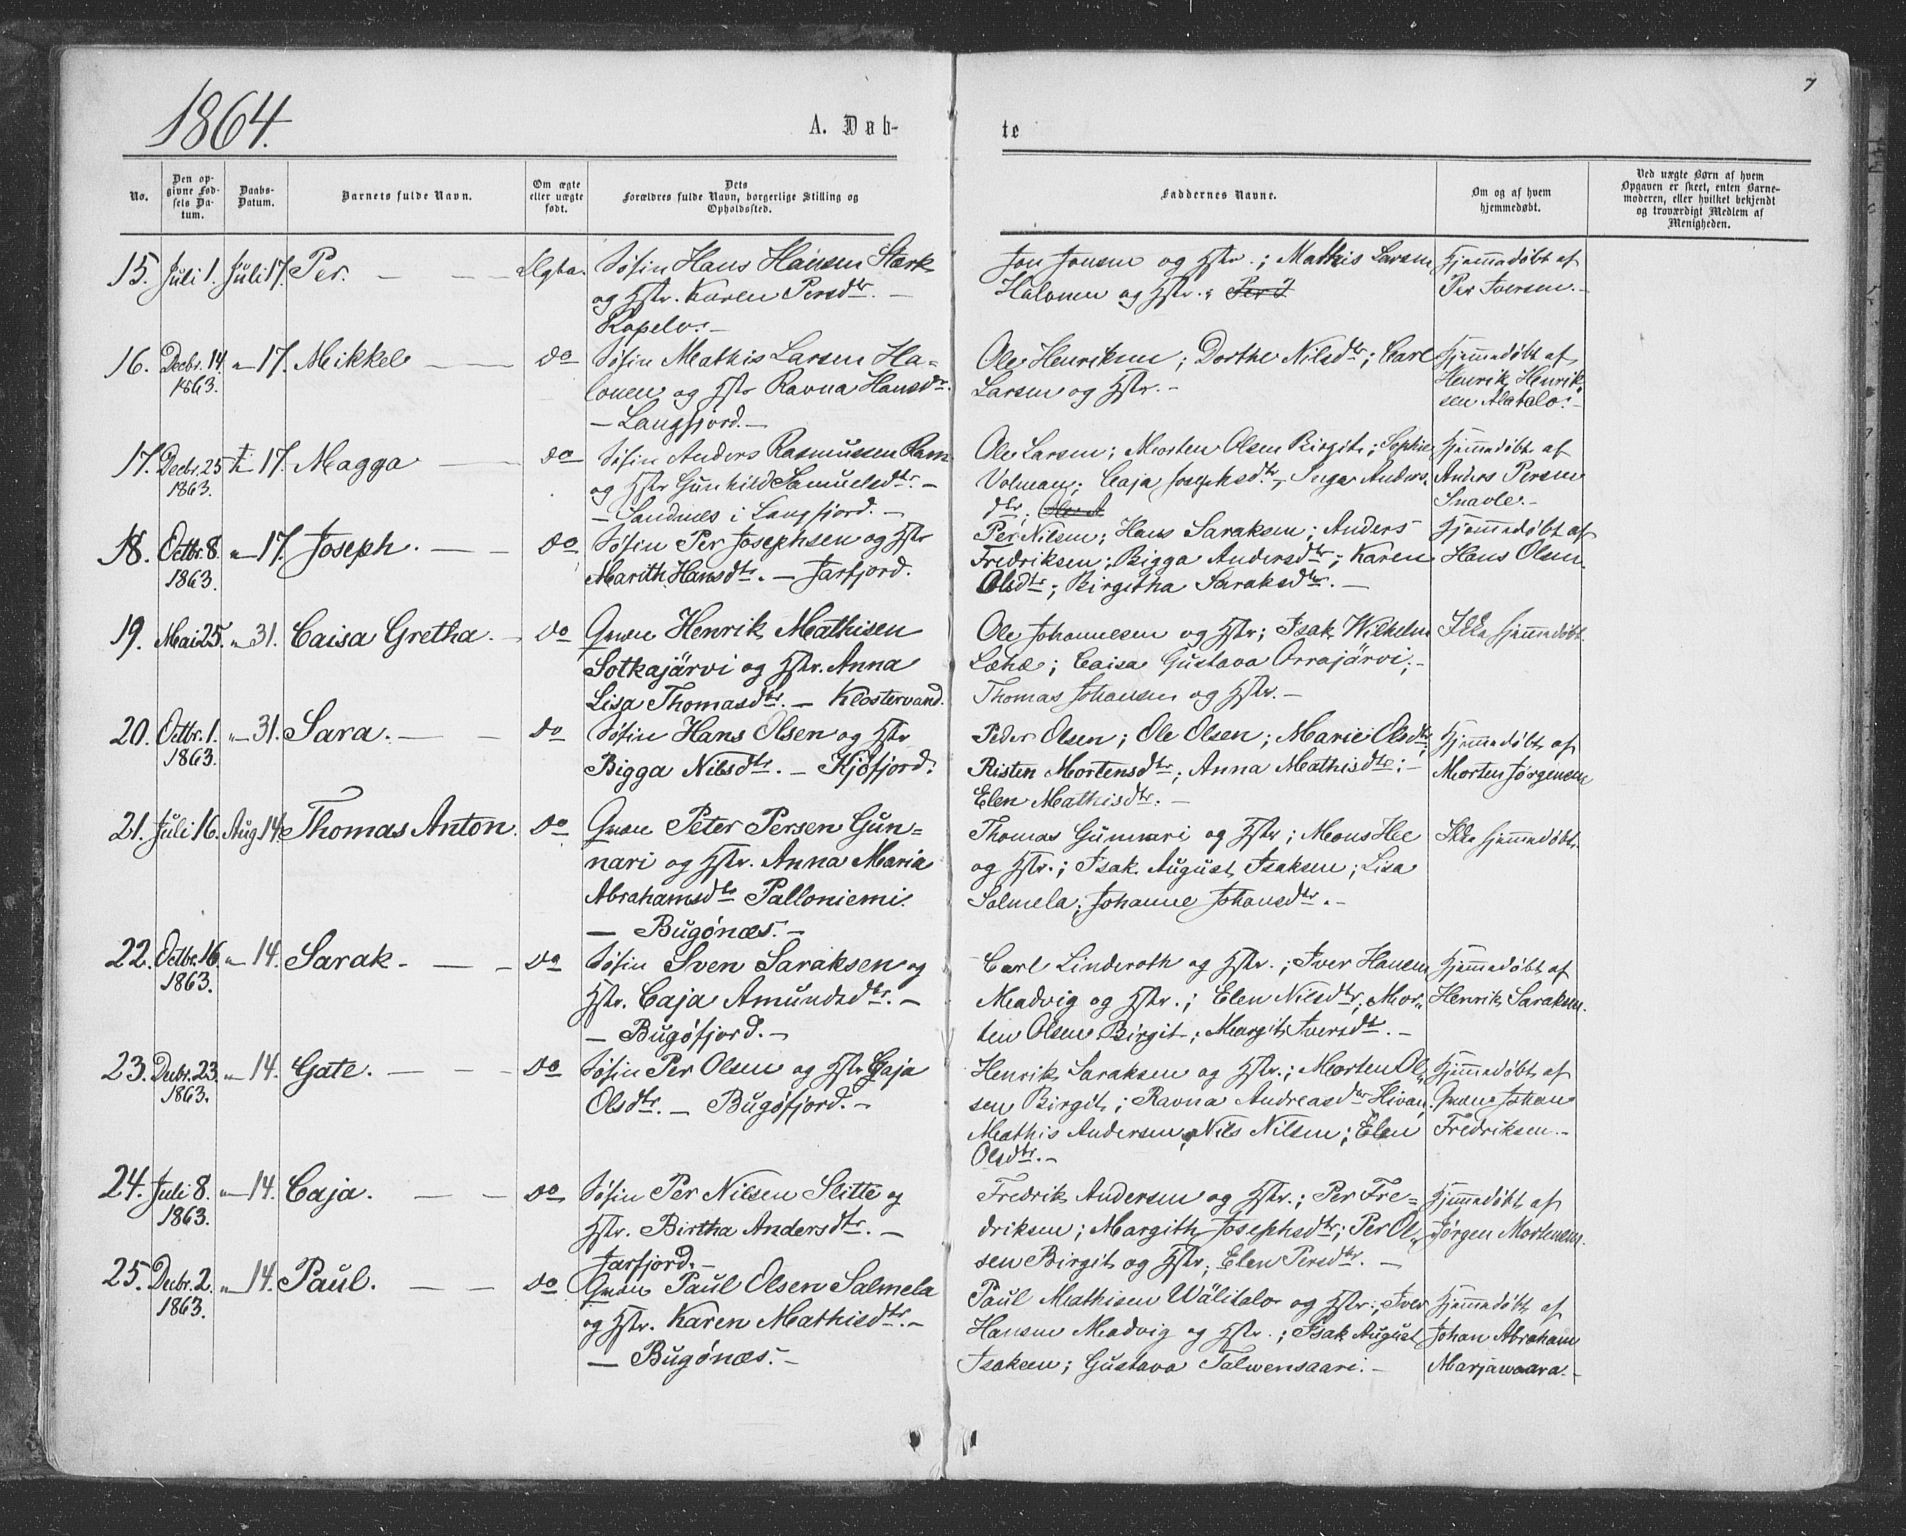 1864.
7
A. Døb-
te
No.
Den op-
givne Fød-
sels Da-
tum.
Daabs-
Datum.
Barnets fulde Navn.
Om ægte
eller uægte
født.
Dets
Forældres fulde Navn, borgerlige Stilling og
Opholdssted.
Faddernes Navne.
Om og af hvem
hjemmedøbt.
Ved uægte Børn af hvem
Opgaven er skeet, enten Barne-
moderen, eller hvilket bekjendt
og troværdigt Medlem af
Menigheden.
15. Juli 1. Juli 17. Per. — — Ægte. Søfin Hans Hansen Stærk
og Hstr. Karen Persdtr. —
Kopelv. —
Jon Jonsen og Hstr.; Mathis Larsen
Halonen og Hstr.; Per J
Hjemmedøbt af
Per Iversen. —
16. Decbr. 14. 1863. " 17. Mikkel — — do Søfin Mathis Larsen Ha-
lonen og Hstr Ravna Hansdtr.
— Langfjord. —
Ole Henriksen; Dorthe Nilsdtr; Carl
Larsen og Hstr. —
Hjemmedøbt af
Henrik Henrik-
sen Alatalo. —
17. Decbr. 25 1863. " 17. Magga — do Søfin Anders Rasmussen Ram
og Hstr Gunhild Samuelsdtr. —
— Sandnes i Langfjord. —
Ole Larsen; Morten Olsen Birgit; Sophie
Volman; Caja Josephsdtr, Inga Anders-
dtr; Ole A
Hjemmedøbt af
Anders Persen
Snavle. —
18. Octbr. 8 1863. " 17. Joseph. — — do Søfin Per Josephsen og Hstr
Marith Hansdtr. — Jarfjord.
Per Nilsen; Hans Saraksen; Anders
Fredriksen; Bigga Andersdtr; Karen
Olsdtr; Birgitha Saraksdtr. —
Hjemmedøbt af
Hans Olsen.
19. Mai 25. " 31. Caisa Gretha. — do Qvæn Henrik Mathisen
Sotkajärvi og Hstr. Anna
Lisa Thomasdtr. — Klostervand.
Ole Johannesen og Hstr; Isak Wilhelm
Læhæ; Caisa Gustava Orrajärvi; —
Thomas Johansen og Hstr. —
Ikke hjemmedøbt.
20. Octbr. 1. 1863. " 31. Sara. — — do Søfin Hans Olsen og Hstr
Bigga Nilsdtr. — Kjøfjord.
Peder Olsen; Ole Olsen; Marie Olsdtr;
Risten Mortensdtr; Anna Mathisdtr; —
Elen Mathisdtr. —
Hjemmedøbt af
Morten Jørgensen
21. Juli 16. Aug 14. Thomas Anton. do Qvæn Peter Persen Gun-
nari og Hstr. Anna Maria
Abrahamsdtr Palloniemi.
— Bugønæs. —
Thomas Gunnari og Hstr; Mons Hee
og Hstr.; Isak August Isaksen; Lisa
Salmela; Johanne Johansdtr. —
Ikke hjemmedøbt.
22. Octbr. 16. 1863. " 14. Sarak. — — do Søfin Sven Saraksen og
Hstr. Caja Amundsdtr. —
— Bugøfjord. —
Carl Linderoth og Hstr.; Iver Hansen
Madvig og Hstr.; Elen Nilsdtr; Mor-
ten Olsen Birgit; Margit Iversdtr. —
Hjemmedøbt af
Henrik Saraksen.
23. Decbr. 23. 1863. " 14. Gate. — — do Søfin Per Olsen og Hstr Gaja
Olsdtr. — Bugøfjord. —
Henrik Saraksen og Hstr.; Morten Ol-
sen Birgit; Ravna Andreasdtr Hivan,
Mathis Andersen, Nils Nilsen; Elen
Olsdtr. —
Hjemmedøbt af
Qvæn Johan
Fredriksen. —
24. Juli 8. 1863. " 14. Caja. — — do Søfin Per Nilsen Slitte og
Hstr. Birtha Andersdtr. —
Jarfjord. —
Fredrik Andersen og Hstr.; Per Fre-
driksen; Margith Josephsdtr; Per Ol-
sen Birgit og Hstr; Elen Persdtr. —
Hjemmedøbt af
Jørgen Mortensen.
25. Decbr. 2. 1863. " 14. Paul. — — do Qvæn Paul Olsen Salmela
og Hstr. Karen Mathisdtr. —
— Bugønæs. —
Paul Mathisen Wälitalo og Hstr.; Iver
Hansen Madvig og Hstr.; Isak August
Isaksen; Gustava Talwensaari. —
Hjemmedøbt af
Johan Abraham
Marjawaara. —